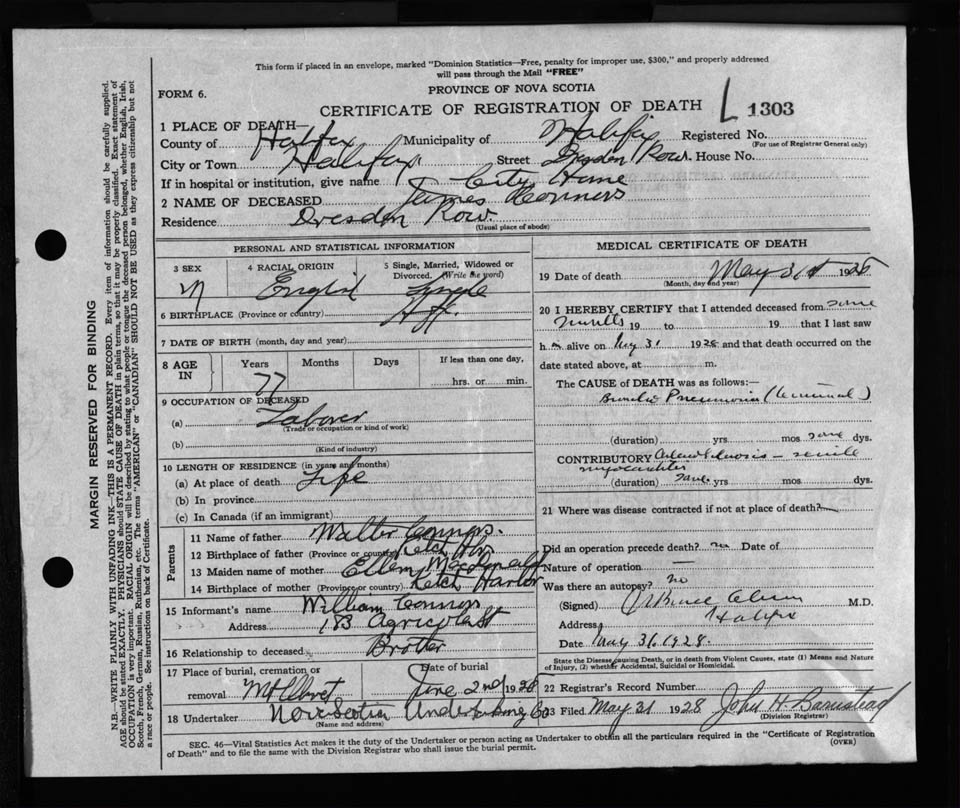 This form if placed in an envelope, marked "Dominion Statistics—Free, penalty for improper use, $300," and properly addressed
will pass through the Mail "FREE"
FORM 6.
PROVINCE OF NOVA SCOTIA
CERTIFICATE OF REGISTRATION OF DEATH L 1303
1 PLACE OF DEATH—
County of Halifax Municipality of Halifax Registered No.
(For use of Registrar General only)
City or Town Halifax Street Dresden Row House No.
If in hospital or institution, give name City Home
2 NAME OF DECEASED James Connors
Residence Dresden Row.
(Usual place of abode)
PERSONAL AND STATISTICAL INFORMATION
3 SEX M
4 RACIAL ORIGIN English
5 Single, Married, Widowed or Divorced. (Write the word) Single
6 BIRTHPLACE (Province or country) Hfx.
7 DATE OF BIRTH (month, day and year)
8 AGE IN Years 77 Months Days If less than one day, hrs. or min.
9 OCCUPATION OF DECEASED
(a) Laborer
(Trade or occupation or kind of work)
(b)
(Kind of industry)
10 LENGTH OF RESIDENCE (in years and months)
(a) At place of death Life
(b) In province
(c) In Canada (if an immigrant)
Parents
11 Name of father Walter Connors.
12 Birthplace of father (Province or country) Ketch Har
13 Maiden name of mother Ellen Macdonald
14 Birthplace of mother (Province or country) Ketch Harbor
15 Informant's name William Connors
Address 183 Agricola St
16 Relationship to deceased Brother
17 Place of burial, cremation or removal Mt Olivet
Date of burial June 2nd 1928
18 Undertaker Nova Scotia Undertaking Co
(Name and address)
MEDICAL CERTIFICATE OF DEATH
19 Date of death May 31st 1928
(Month, day and year)
20 I HEREBY CERTIFY that I attended deceased from some
months 19 to 19 that I last saw
h m alive on May 31 1928 and that death occurred on the
date stated above, at m.
The CAUSE of DEATH was as follows:—
Broncho Pneumonia (terminal)
(duration) yrs mos some dys.
CONTRIBUTORY Arteriosclerosis – senile
myocarditis
(duration) some yrs mos dys.
21 Where was disease contracted if not at place of death?
Did an operation precede death? no Date of
Nature of operation —
Was there an autopsy? no
(Signed) M.D.
Address Halifax
Date May 31, 1928.
State the Disease causing Death, or in death from Violent Causes, state (1) Means and Nature
of Injury, (2) whether Accidental, Suicidal or Homicidal.
22 Registrar's Record Number
23 Filed May 31 1928 John H. Barnstead
(Division Registrar)
SEC. 46—Vital Statistics Act makes it the duty of the Undertaker or person acting as Undertaker to obtain all the particulars required in the "Certificate of Registration
of Death" and to file the same with the Division Registrar who shall issue the burial permit.
(OVER)
MARGIN RESERVED FOR BINDING
N.B.—WRITE PLAINLY WITH UNFADING INK—THIS IS A PERMANENT RECORD. Every item of information should be carefully supplied.
AGE should be stated EXACTLY. PHYSICIANS should STATE CAUSE OF DEATH in plain terms, so that it may be properly classified. Exact statement of
OCCUPATION is very important. RACIAL ORIGIN will be described by stating to what people or tongue the deceased person belonged, whether English, Irish,
Scotch, French, German, Russian, Ruthenian, etc. The terms "AMERICAN" or "CANADIAN" SHOULD NOT BE USED as they express citizenship but not
a race or people. See instructions on back of Certificate.